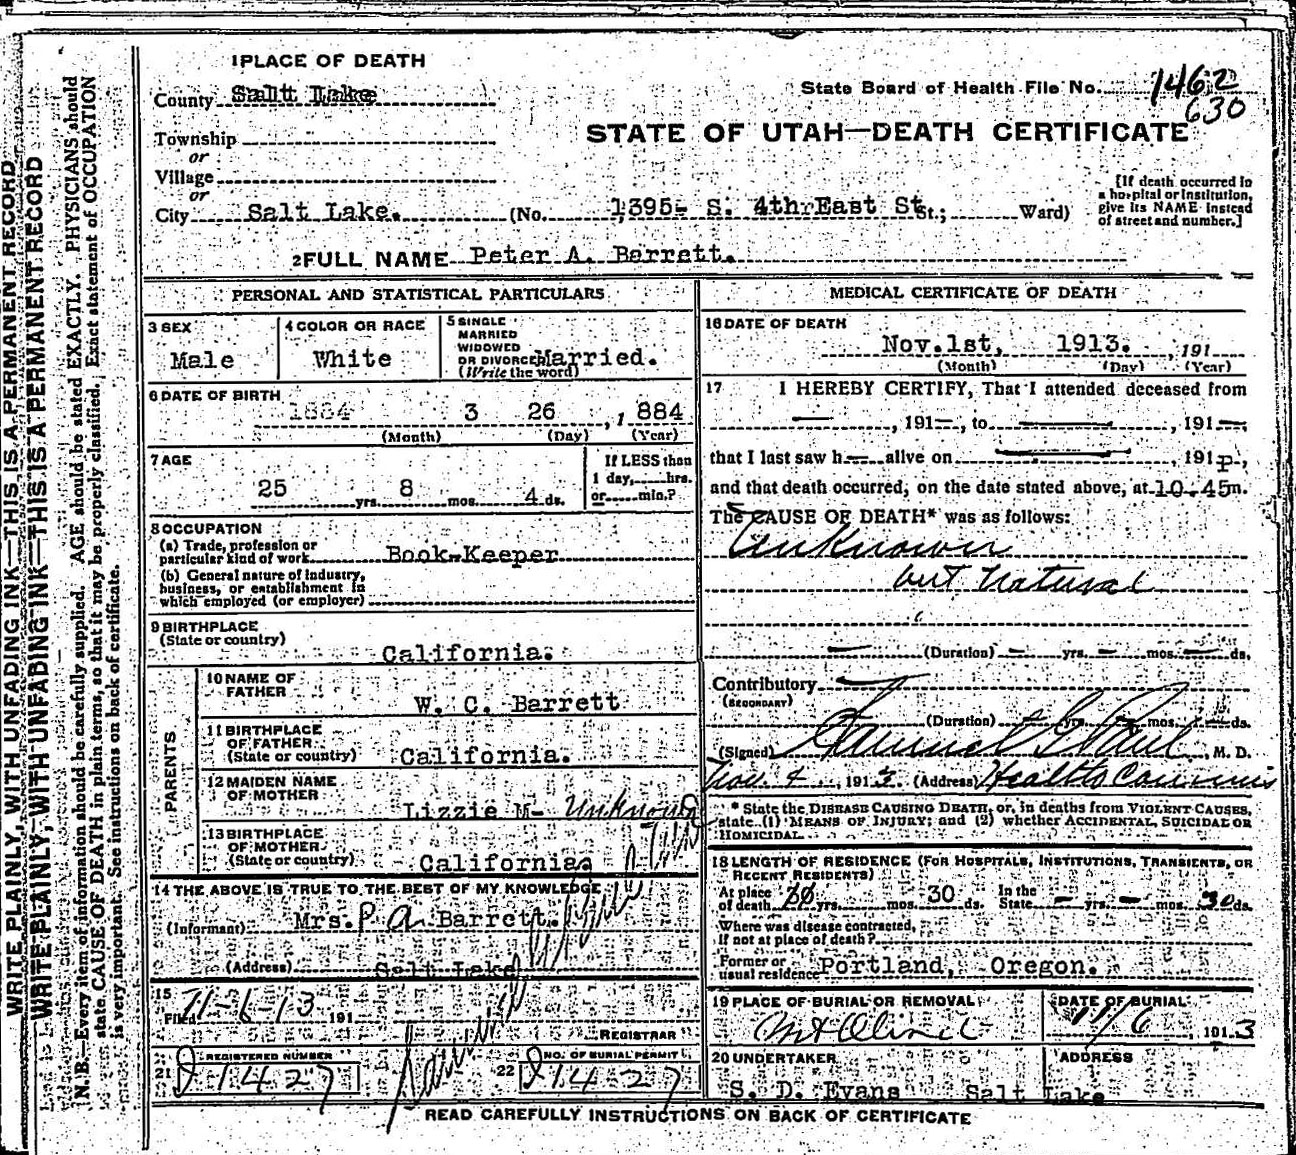 1 PLACE OF DEATH
County Salt Lake
State Board of Health File No. 1462
630
Township
or
STATE OF UTAH—DEATH CERTIFICATE
Village
or
City Salt Lake. (No. 1395- S. 4th East St St.; Ward)
[If death occurred in
a hospital or institution,
give its NAME instead
of street and number.]
2 FULL NAME Peter A. Barrett.
PERSONAL AND STATISTICAL PARTICULARS
3 SEX
Male
4 COLOR OR RACE
White
5 SINGLE
MARRIED
WIDOWED
OR DIVORCED Married.
(Write the word)
6 DATE OF BIRTH
1884 3 26, 1 884
(Month) (Day) (Year)
7 AGE
25 yrs. 8 mos. 4 ds.
If LESS than
1 day, hrs.
or min.?
8 OCCUPATION
(a) Trade, profession or
particular kind of work Book-Keeper
(b) General nature of industry,
business, or establishment in
which employed (or employer)
9 BIRTHPLACE
(State or country)
California.
PARENTS
10 NAME OF
FATHER
W. C. Barrett
11 BIRTHPLACE
OF FATHER
(State or country) California.
12 MAIDEN NAME
OF MOTHER
Lizzie M- Unknown
13 BIRTHPLACE
OF MOTHER
(State or country) California.
14 THE ABOVE IS TRUE TO THE BEST OF MY KNOWLEDGE
(Informant) Mrs. P A. Barrett.
(Address) Salt Lake
15
Filed 11-6-13 191
REGISTRAR
21 REGISTERED NUMBER
D 1427
22 NO. OF BURIAL PERMIT
D 1427
MEDICAL CERTIFICATE OF DEATH
16 DATE OF DEATH
Nov. 1st, 1913. , 191
(Month) (Day) (Year)
17 I HEREBY CERTIFY, That I attended deceased from
— , 191—, to — , 191—,
that I last saw h— alive on — , 191 P,
and that death occurred, on the date stated above, at 10.45 m.
The CAUSE OF DEATH* was as follows:
Unknown
but natural
— (Duration) — yrs. — mos. — ds.
Contributory —
(SECONDARY)
(Duration) — yrs. — mos. — ds.
(Signed) Samuel G Paul, M. D.
Nov. 4, 1913. (Address) Health Commis
* State the DISEASE CAUSING DEATH, or, in deaths from VIOLENT CAUSES,
state (1) MEANS OF INJURY; and (2) whether ACCIDENTAL, SUICIDAL OR
HOMICIDAL.
18 LENGTH OF RESIDENCE (FOR HOSPITALS, INSTITUTIONS, TRANSIENTS, OR
RECENT RESIDENTS)
At place
of death 30 yrs. mos. 30 ds. In the
State — yrs. — mos. 30 ds.
Where was disease contracted,
if not at place of death?
Former or
usual residence Portland, Oregon.
19 PLACE OF BURIAL OR REMOVAL
Mt Olivet
DATE OF BURIAL
11/6 1913
20 UNDERTAKER
S. D. Evans
ADDRESS
Salt Lake
READ CAREFULLY INSTRUCTIONS ON BACK OF CERTIFICATE
WRITE PLAINLY, WITH UNFADING INK—THIS IS A PERMANENT RECORD
WRITE PLAINLY, WITH UNFADING INK—THIS IS A PERMANENT RECORD
N. B.—Every item of information should be carefully supplied. AGE should be stated EXACTLY. PHYSICIANS should
state CAUSE OF DEATH in plain terms, so that it may be properly classified. Exact statement of OCCUPATION
is very important. See instructions on back of certificate.